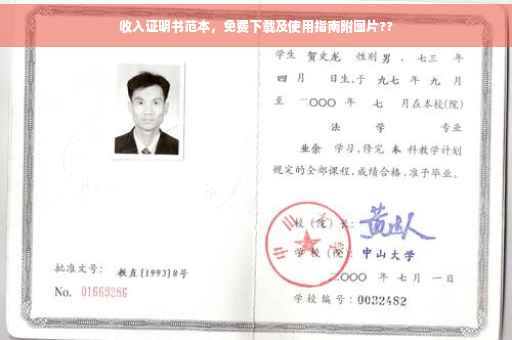 收入证明书范本，免费下载及使用指南附图片??
学生 贺文龙 性别 男 ，七三 年
四 月 日生，于 九七 年 九 月
至 二〇〇〇 年 七 月在本校(院)
法 学 专业
业余 学习，修完 本 科教学计划
规定的全部课程，成绩合格，准予毕业。
校（院）长：
学校（院）：中山大学
二〇〇〇 年 七 月 一 日
学校编号：0032482
批准文号：教直[1993]8号
No. 01669286